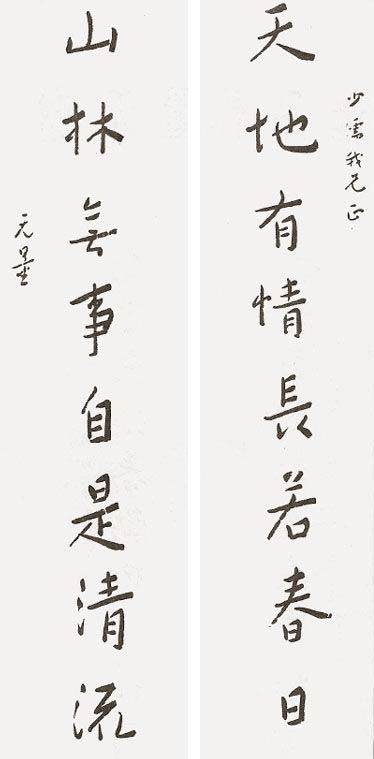 少儒我兄正
天地有情長若春日
山林無事自是清流